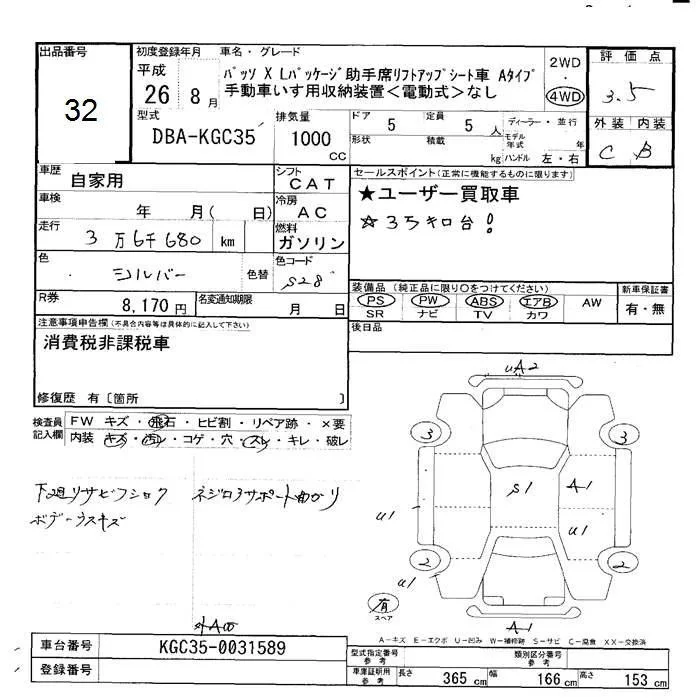 出品番号
32
初度登録年月
平成
26 8 月
車名・グレード
パッソ X Lパッケージ助手席リフトアップシート車 Aタイプ
手動車いす用収納装置<電動式>なし
2WD
・
4WD
評価点
3.5
外装 内装
C B
型式
DBA-KGC35
排気量
1000
CC
ドア 5
定員 5 人
形状
積載
kg
ディーラー・並行
モデル年式 年
ハンドル 左・右
車歴
自家用
シフト
CAT
車検
年 月( 日)
冷房
AC
走行
3万6千680 km
燃料
ガソリン
色
シルバー
色替
色コード
S28
R券
8,170 円
名変通知期限
月 日
セールスポイント(正常に機能するものに限ります)
★ユーザー買取車
☆35キロ台!
装備品(純正品に限り〇をつけてください)
PS PW ABS エアB AW
SR ナビ TV カワ
新車保証書
有・無
後日品
注意事項申告欄(不具合内容等は具体的に記入して下さい)
消費税非課税車
修復歴 有〔箇所 〕
検査員記入欄
FW キズ・飛石・ヒビ割・リペア跡・×要
内装 キズ・汚レ・コゲ・穴・スレ・キレ・破レ
下廻リサビフショク
ネジロアサポート曲がり
ボデーウスキズ
外A00
UA2
3 3
S1
A1
U1
U1
2 2
U1
有
スペア
A1
A-キズ E-エクボ U-凹み W-補修跡 S-サビ C-腐食 XX-交換済
車台番号
KGC35-0031589
登録番号
型式指定番号
参考
類別区分番号
参考
車庫証明用
参考
長さ 365 cm
幅 166 cm
高さ 153 cm